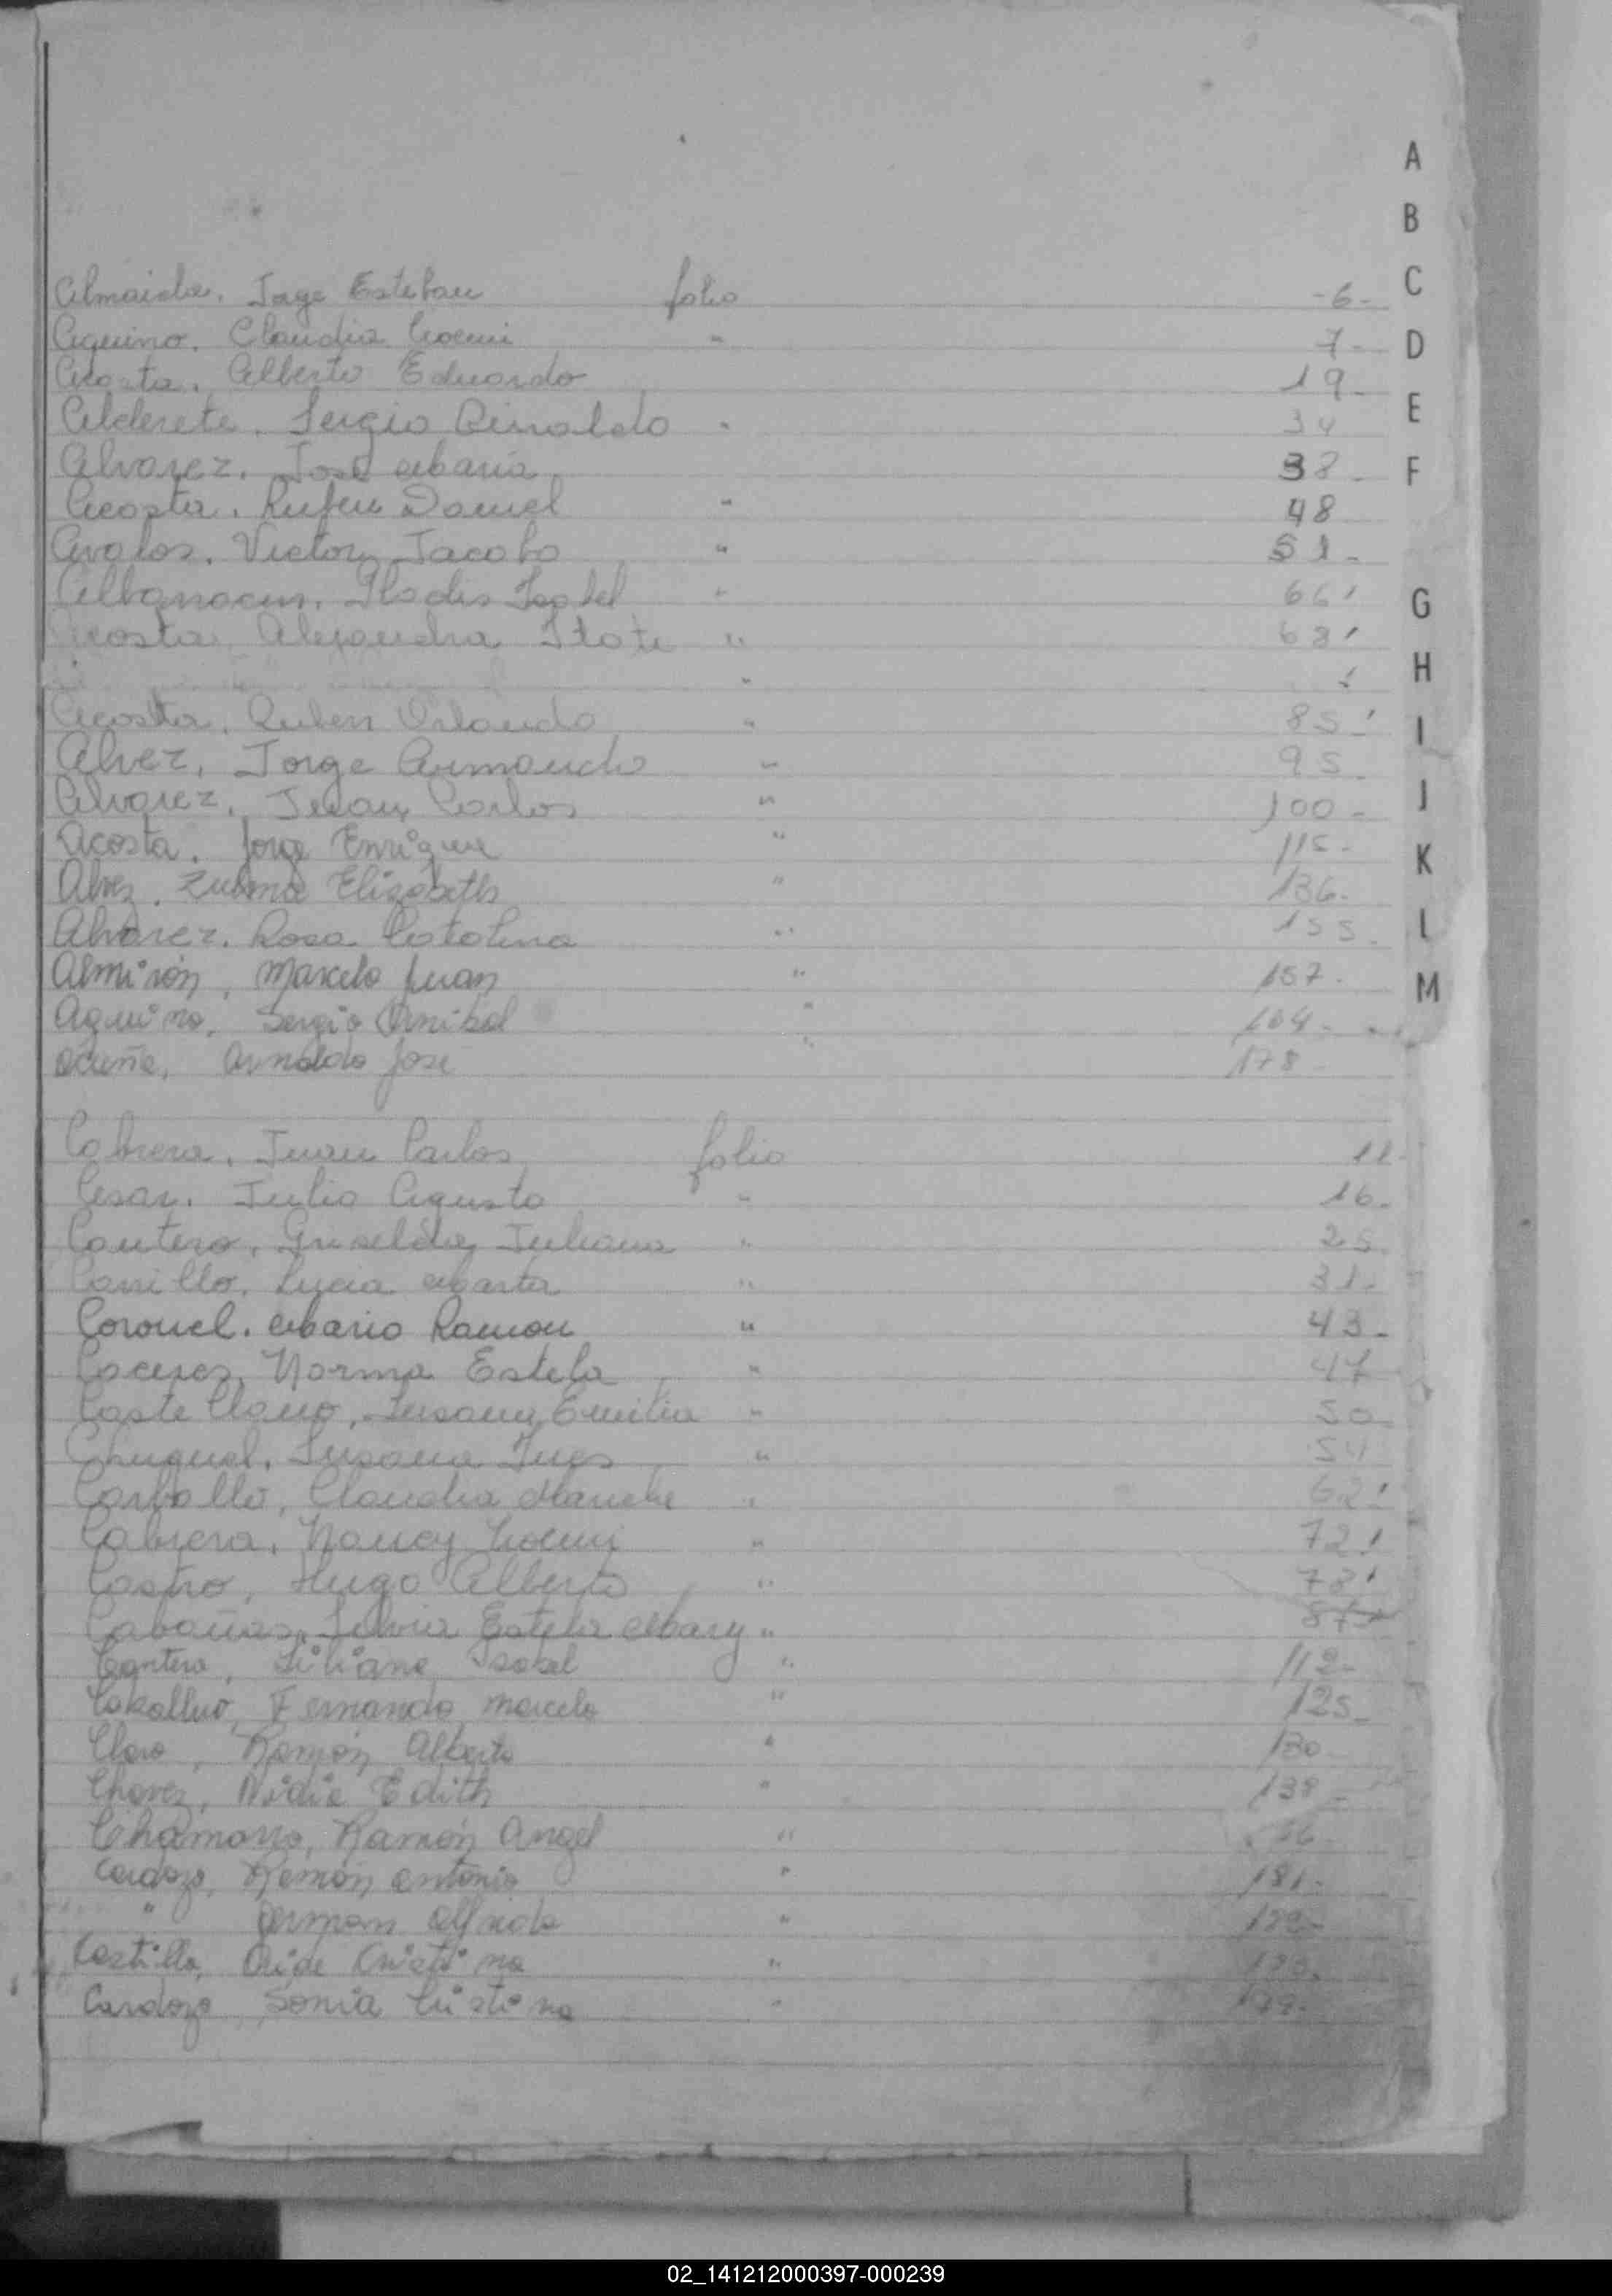 A
B
C
D
E
F
G
H
I
J
K
L
M
Almaida. Jorge Esteban folio -6-
Aquino. Claudia Noemi " 7-
Acosta. Alberto Eduardo 19-
Alderete. Sergio Rinaldo " 34
Alvarez. José Maria 38-
Acosta. Ruben Daniel " 48
Avalos. Victor Jacobo " 51-
Gladis Isabel " 66'
Acosta. Alejandra Itati " 68'
"
Acosta. Ruben Orlando " 85'
Alvez. Jorge Armando " 95-
Alvarez. Juan Carlos " 100-
Acosta. Jorge Enrique " 115-
Alvez. Zulma Elizabeth " 136-
Alvarez. Rosa Catalina " 155-
Almirón, Marcelo Juan " 157-
Aquino, Sergio Anibal " 164-
Acuña, Arnaldo José " 178-
Cabrera. Juan Carlos folio 11-
Cesar. Julio Agusto " 16-
Cantero. Griselda Juliana " 25-
Carrillo. Lucia Marta " 31-
Coronel. Mario Ramon " 43-
Caceres. Norma Estela " 47
Castellano. Susana Emilia " 50-
Susana Ines " 54
Carballo, Claudia " 62'
Cabrera. Nancy Noemi " 72'
Castro, Hugo Alberto " 78'
Cabañas. Silvia Estela Mary " 87
Cantero, Liliana Isabel " 112-
Fernando Marcelo " 125-
Claro, Ramón Alberto " 130-
Chavez, Nidia Edith " 138-
Chamorro, Ramón Angel "
Cardozo, Ramón Antonio " 181-
" German Alfredo "
Castillo, Cristina "
Cardozo, Sonia Cristina "
02_141212000397-000239